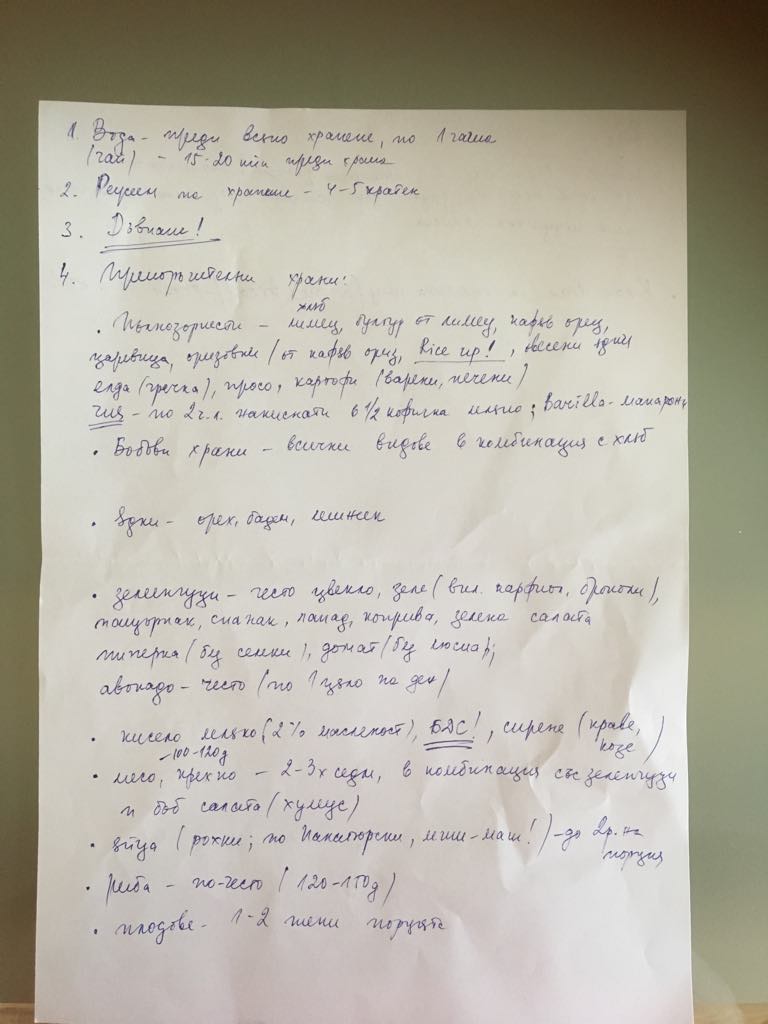 1. Вода - преди всяко хранене, по 1 чаша
(чай) - 15-20 min преди храна
2. Режим на хранене - 4-5 кратен
3. Движение!
4. Препоръчителни храни:
хляб
• Пълнозърнести - лимец, булгур от лимец, кафяв ориз,
царевица, оризовки (от кафяв ориз, Rice up!, овесени ядки
елда (гречка), просо, картофи (варени, печени)
чиа - по 2 ч.л. накиснати в 1/2 кофичка мляко; Barilla - макарони
• Бобови храни - всички видове в комбинация с хляб
• Ядки - орех, бадем, лешник
• зеленчуци - често цвекло, зеле (вкл. карфиол, броколи),
пащърнак, спанак, лапад, коприва, зелена салата
пиперка (без семки), домат (без люспа);
авокадо - често (по 1 цяло на ден)
• кисело мляко (2% масленост), БДС!, сирене (краве,
козе)
~100-120g
• месо, крехко - 2-3х седм, в комбинация със зеленчуци
и боб салата (хумус)
• яйца (рохки; по Панагюрски, миш-маш!) - до 2 р. на
порция
• риба - по-често (120-150g)
• плодове - 1-2 порции